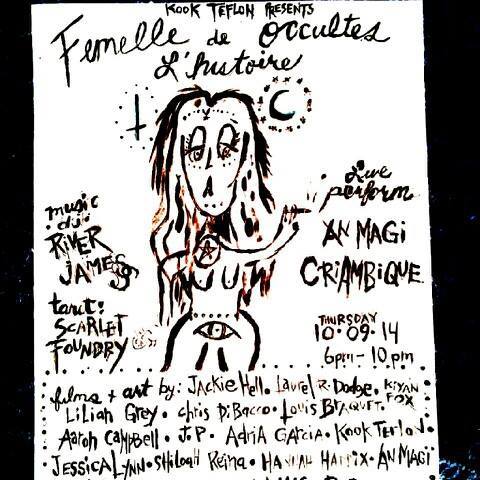 KOOK TEFLON PRESENTS
Femelle de Occultes
L'histoire
music
dj
RIVER
JAMES
tarot:
SCARLET
FOUNDRY
Live
perform
AN MAGI
CRIAMBIQUE
THURSDAY
10·09·14
6pm - 10pm
films + art by: JACKIE HELL. LAUREL R. DODGE. KIYAN FOX
LILIAN GREY. CHRIS DIBACCO. LOUIS BRAQUET.
AARON CAMPBELL. J.P. ADRIA GARCIA. KOOK TEFLON.
JESSICA LYNN. SHILOAH REINA. HANNAH AN MAGI